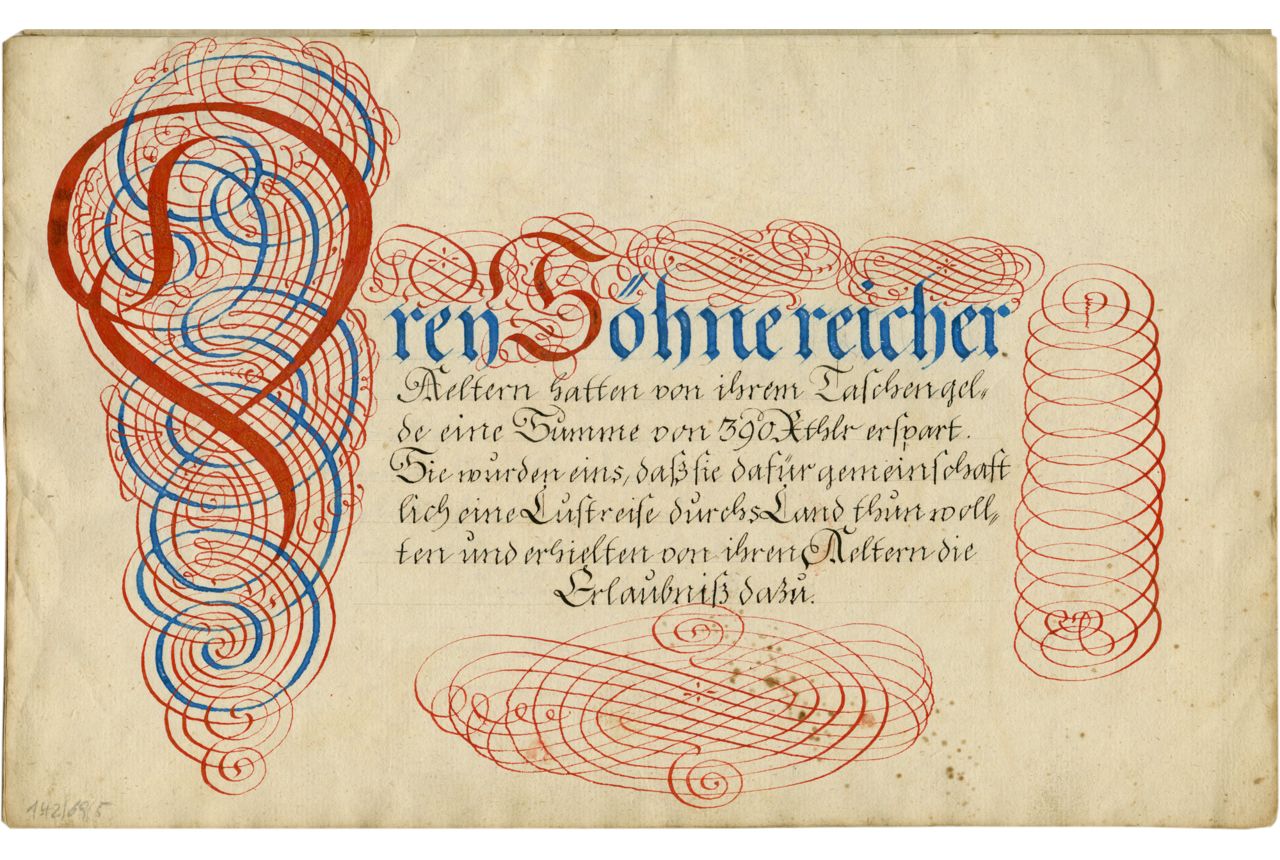 Drey Söhne reicher
Aeltern hatten von ihrem Taschengel=
de eine Summe von 390 Rthlr erspart.
Sie wurden eins, daß sie dafür gemeinschaft
lich eine Lustreise durchs Land thun woll=
ten und erhielten von ihren Aeltern die
Erlaubniß dazu.